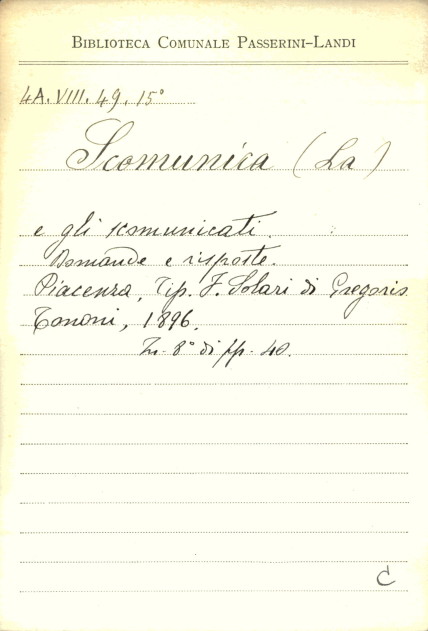 BIBLIOTECA COMUNALE PASSERINI-LANDI
4A.VIII.49.15°
Scomunica (La)
e gli scomunicati.
Domande e risposte.
Piacenza, Tip. F. Solari di Gregorio
Tononi, 1896.
In 8° di pp. 40.
C